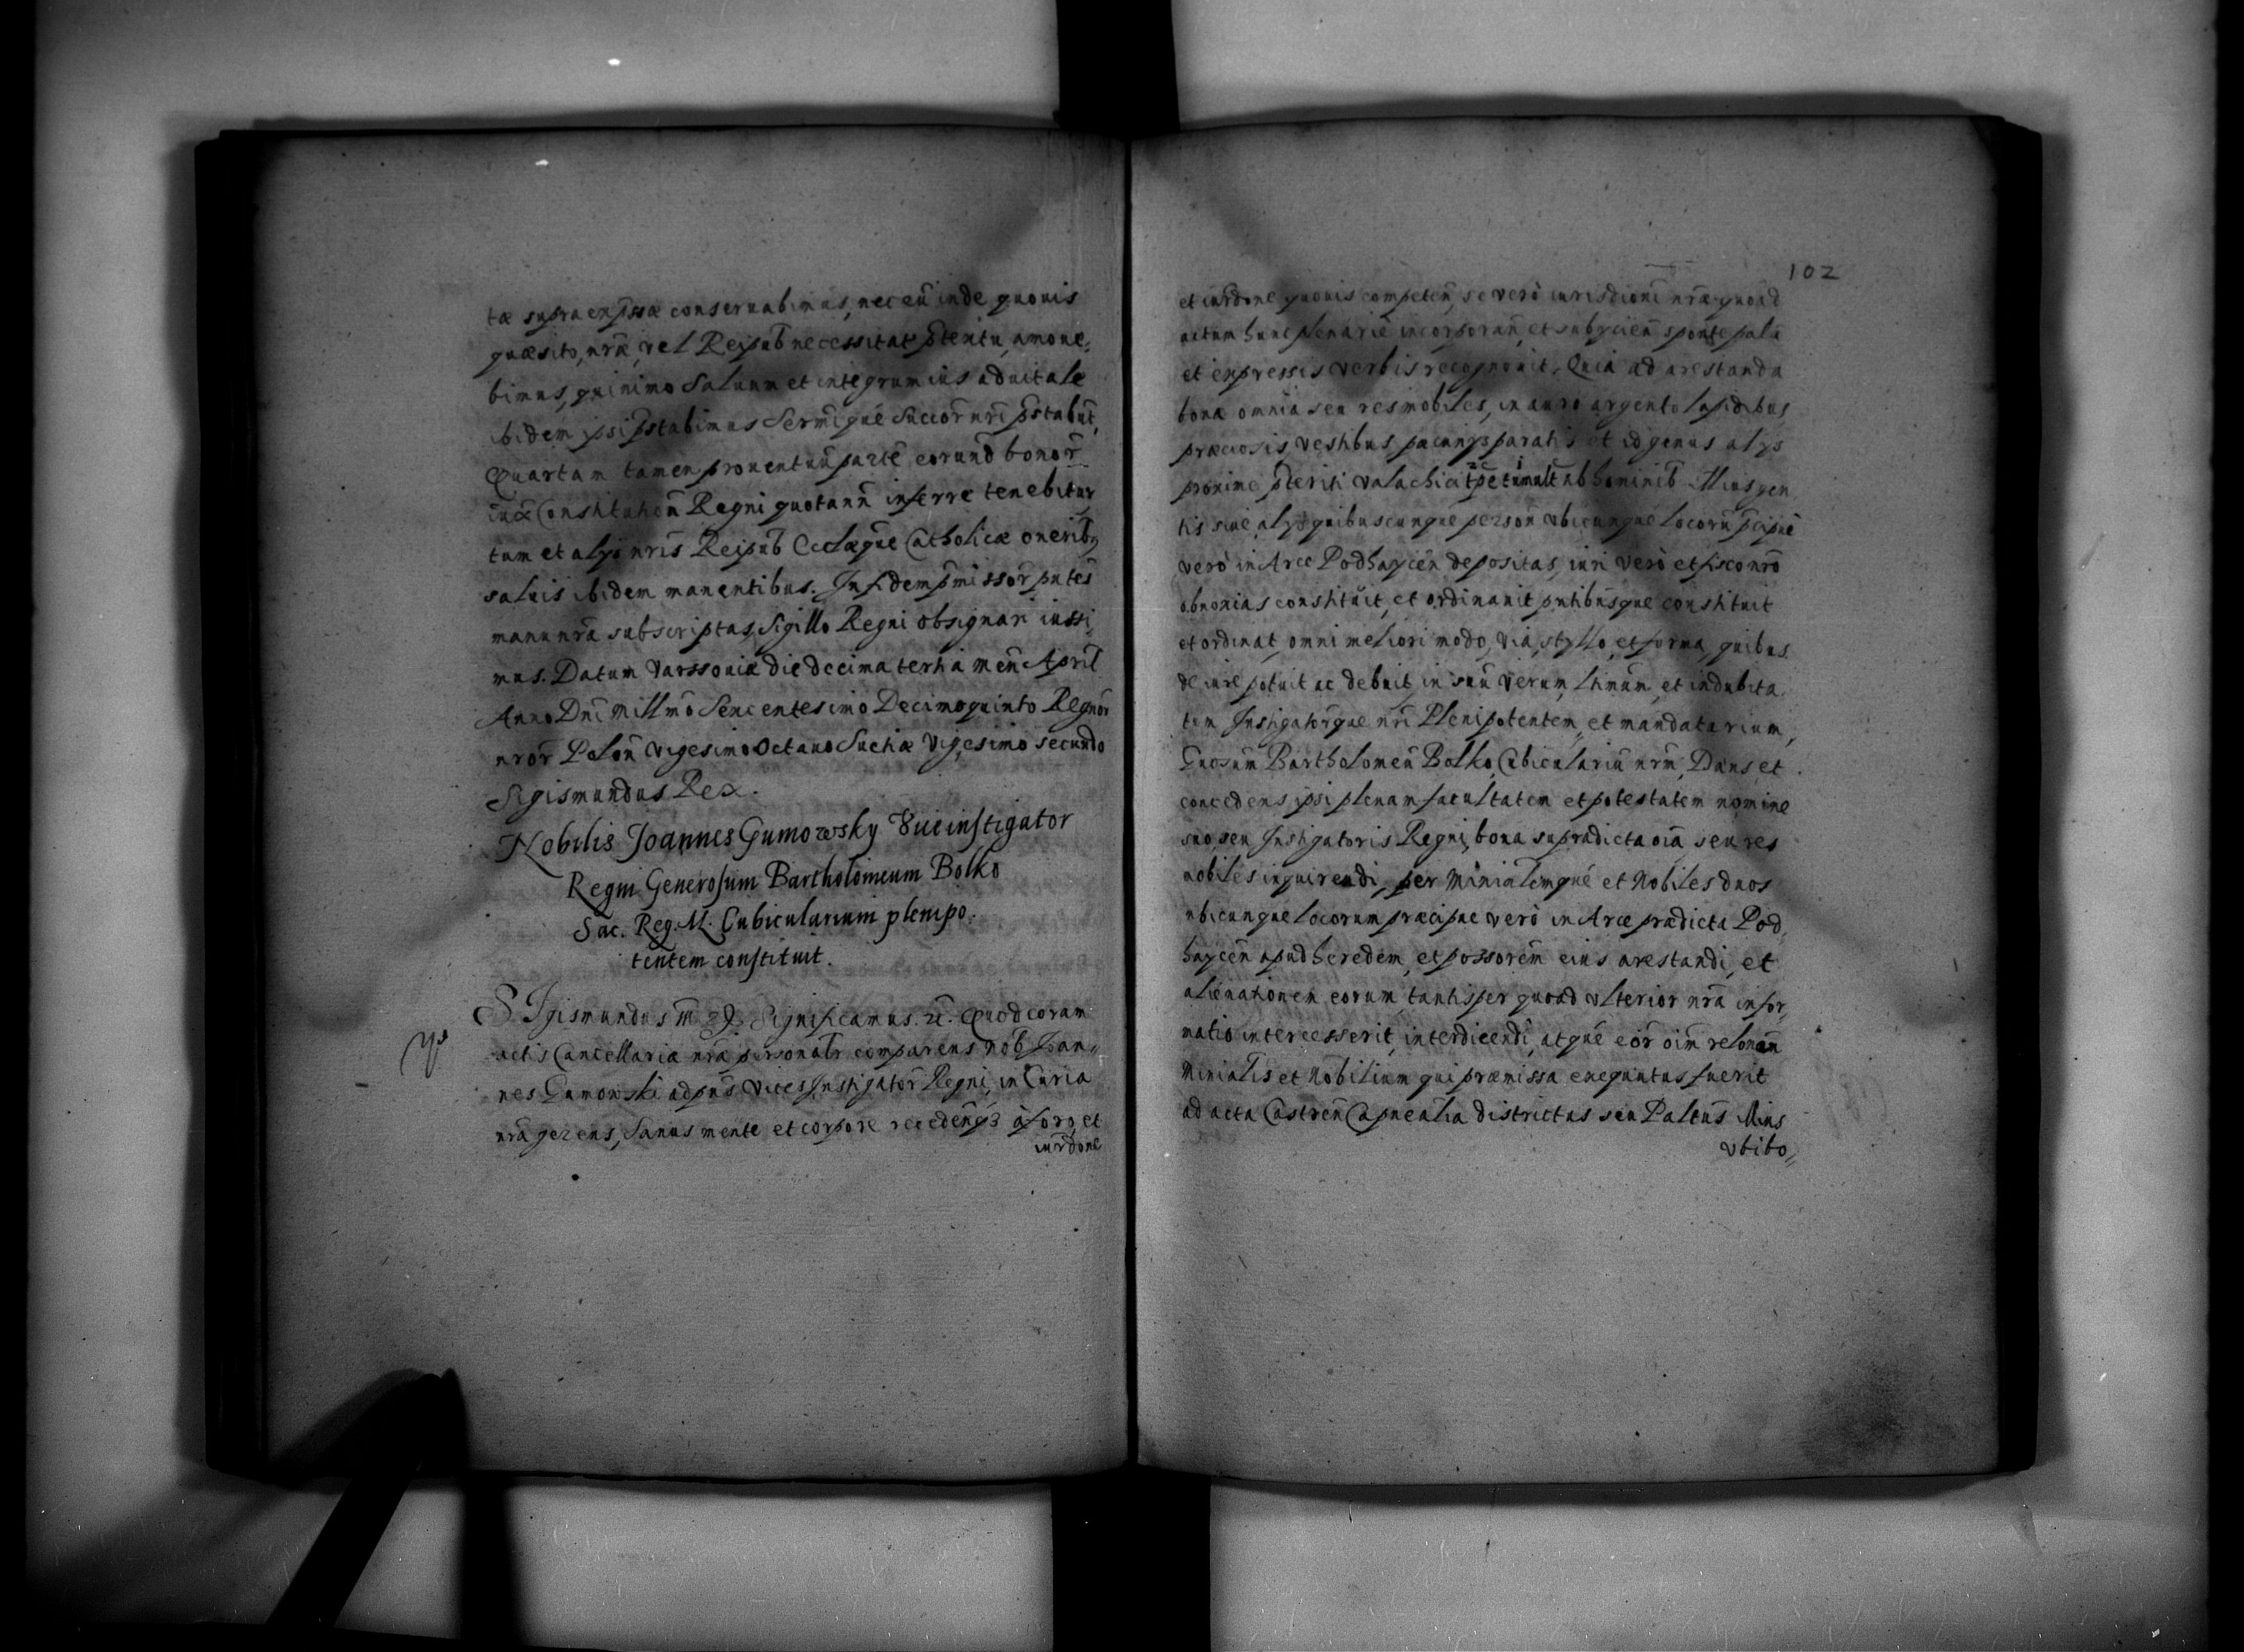 tæ supra expssæ conseruabimus, nec eū inde quouis
quæsito, nræ, vel Reipub necessitat ptextu, amoue,
bimus, quinimo Saluum et integrum ius aduitale
ibidem ipsi pstabimus Sermiqué Succor nri pstabūt,
Quartam tamen prouentuū partē eorund bonor
iux Constitution Regni quotann inferre tenebitur
tum et alys nris Reipub Ecclæque Catholicæ onerib9
saluis ibidem manentibus. In fidem pmissor pntes
manu nra subscriptas, Sigillo Regni obsignari iussi,
mus. Datum Varssouiæ die decima tertia men April
Anno Dni Millmo Sexcentesimo Decimoquinto Regnor
nror Polon Vigesimo Octauo Suetiæ Vigesimo secundo
Sigismundus Rex.
Nobilis Joannes Gumowsky Viceinstigator
Regni Generosum Bartholomeum Bolko
Sac. Reg. M. Cubicularium plenipo.
tentem constituit.
SIgismundus Significamus. Quod coram
actis Cancellariæ nra personalr comparens nob Joan,,
nes Gumowski ad pns Vices Instigator Regni, in Curia
nra gerens, Sanus mente et corpore recedens à foro, et
iurdone
102
et iurdone quouis competen, se verò iurisdioni nræ quoad
actum hunc plenariè incorporan, et subycien sponte palā
et expressis verbis recognouit. Quia ad arestanda
bona omnia seu res mobiles, in auro argento lapidibus,
præciosis vestibus, pecunys paratis et id genus alys
proxime pteriti Valachici tpe tumult ab hominib illius gen
tis siue alys quibuscunque person vbicunque locorū pcipuè
verò in Arce Podhaycen depositas, iuri verò et fisco nro
obnoxias constituit, et ordinauit pntibusque constituit
et ordinat, omni meliori modo, via, stylo, et forma, quibus
de iure potuit ac debuit, in suū verum, ltimūm, et indubita
tum Instigatorque nri Plenipotentem, et mandatarium,
Gnosum Bartholomeū Bolko, Cubiculariū nrm, Dans et
concedens ipsi plenam facultatem et potestatem nomine
suo, seu Instigatoris Regni, bona supradicta oia seu res
mobiles inquirendi, per Minialemqué et Nobiles duos
vbicunque locorum præcipue verò in Arce prædicta Pod,
haycen apud heredem, et possorem eius arestandi, et
alienationem eorum tantisper quoad vlterior nra infor,
matio intercesserit, interdicendi, atque eor oim relonem
Minialis et Nobilium qui præmissa exequutus fuerit
ad acta Castren Capnealia districtus seu Paltus illius
vbi bo,,